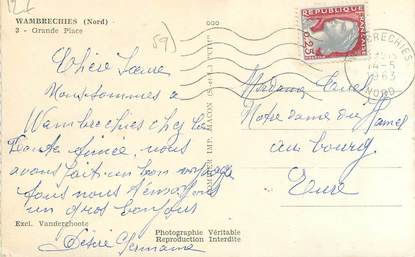 WAMBRECHIES (Nord)
3 - Grande Place
59)
Chère Sœur
Nous sommes à
Wambrechies chez le
nous
avons fait un bon voyage
tous nous t'envoyons
un gros bonjour
Désiré Germaine
Excl. Vanderghoote
Photographie Véritable
Reproduction Interdite
IMP. MACON
REPUBLIQUE FRANÇAISE
0,25
POSTES
14-5
1963
NORD
Madame
Notre dame du Hamel
au bourg
Eure